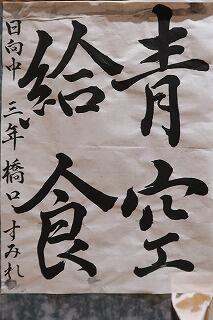 青空
給食
日向中 三年 橋口 すみれ